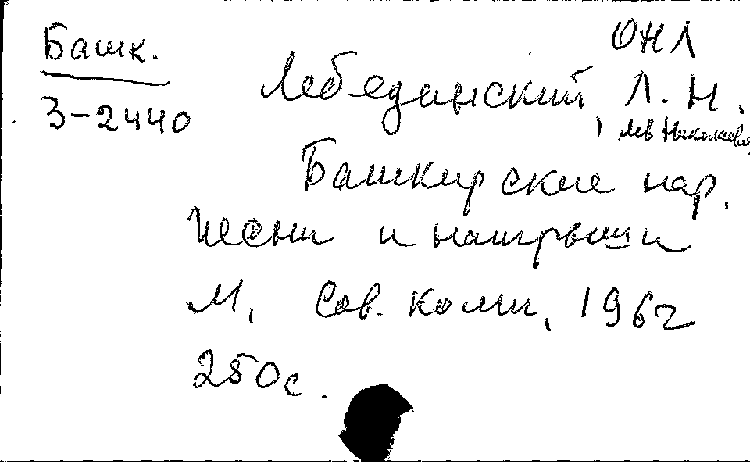 Башк.
3-2440
ОНЛ
Лебединский, Л. Н.
Лев Николаевич
Башкирские нар.
песни и наигрыши
М., Сов. комп., 1962
250с.